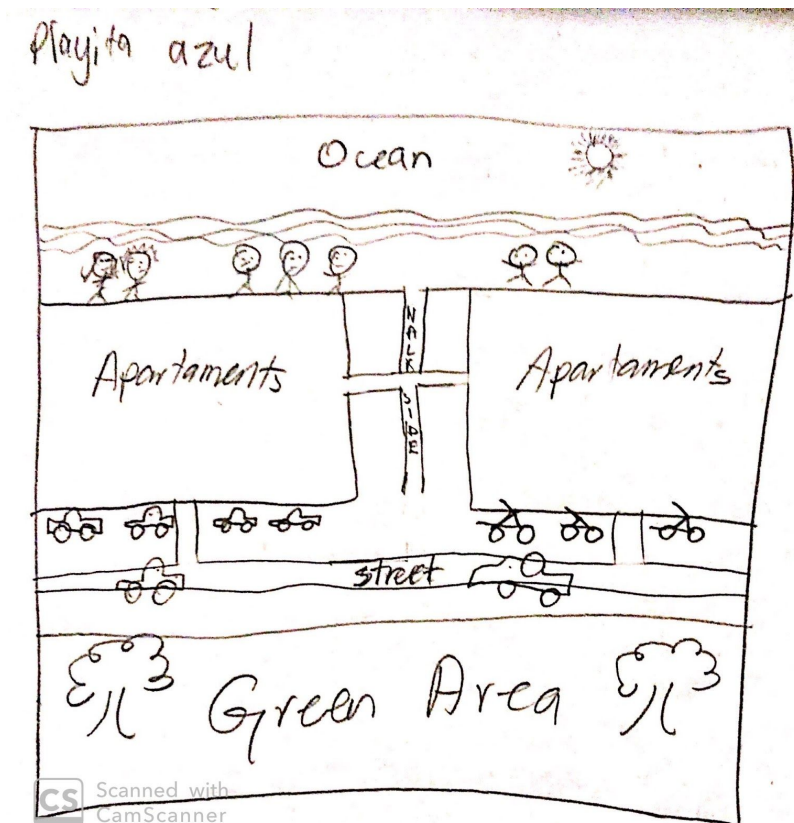 Playita azul
Ocean
WALK
SIDE
Apartaments
Apartaments
street
Green Area
CS Scanned with
CamScanner